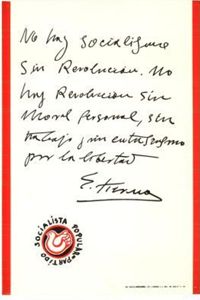 No hay Socialismo
Sin Revolución. No
hay Revolución sin
Moral Personal, sin
trabajo y sin entusiasmo
por la libertad
E. Tierno
PARTIDO SOCIALISTA POPULAR